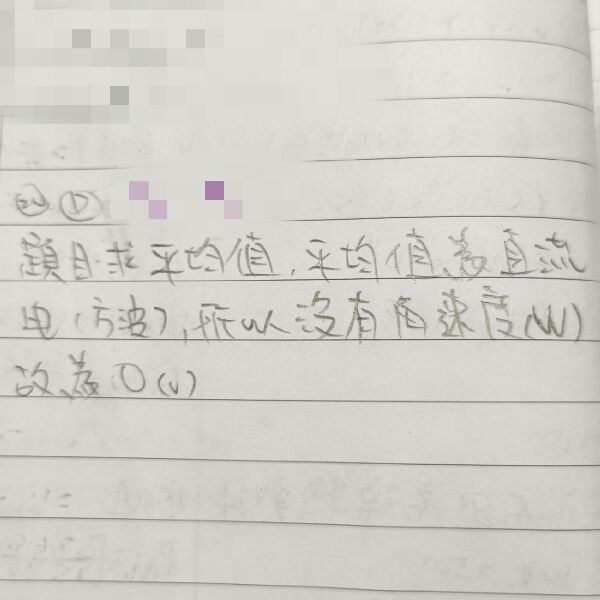 22 D
題目求平均值,平均值為直流
电(方波),所以沒有角速度(W)
故為0(v)